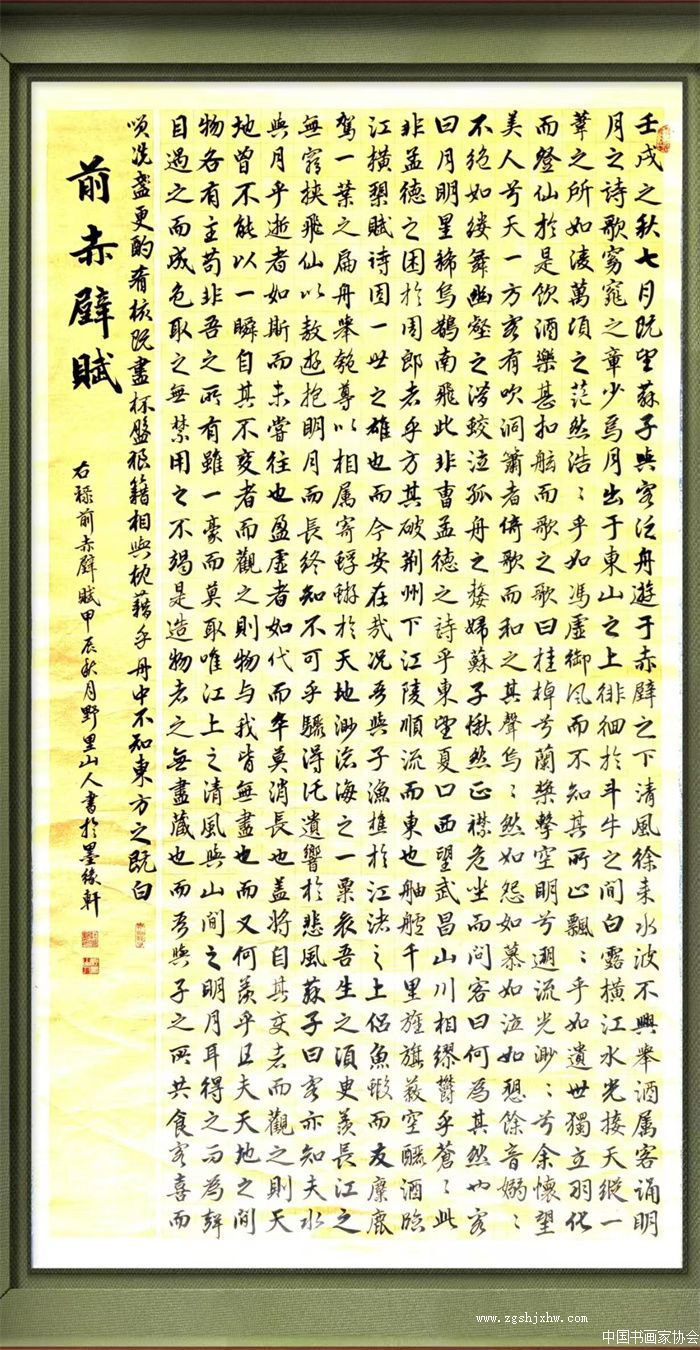 壬戌之秋七月既望蘇子與客泛舟遊于赤壁之下清風徐来水波不興舉酒属客誦明
月之诗歌窈窕之章少焉月出于東山之上徘徊於斗牛之间白露横江水光接天縱一
葦之所如淩萬頃之茫然浩〻乎如馮虚御风而不知其所止飄〻乎如遺世獨立羽化
而登仙於是饮酒樂甚扣舷而歌之歌曰桂棹兮蘭槳擊空明兮溯流光渺〻兮余懷望
美人兮天一方客有吹洞簫者倚歌而和之其聲烏〻然如怨如慕如泣如愬餘音嫋〻
不绝如縷舞幽壑之潜蛟泣孤舟之嫠婦蘇子愀然正襟危坐而问客曰何為其然也客
曰月明星稀烏鵲南飛此非曹孟德之詩乎東望夏口西望武昌山川相缪鬱乎蒼〻此
非孟德之困於周郎者乎方其破荆州下江陵順流而東也舳舻千里旌旗蔽空釃酒臨
江横槊賦诗固一世之雄也而今安在哉况吾與子漁樵於江渚之上侣魚蝦而友麋鹿
驾一葉之扁舟舉匏尊以相属寄蜉蝣於天地渺滄海之一粟哀吾生之須臾羡長江之
無窮挟飛仙以敖遊抱明月而長终知不可乎驟得托遺響於悲風蘇子曰客亦知夫水
與月乎逝者如斯而未嘗往也盈虚者如代而卒莫消長也盖將自其变者而觀之則天
地曾不能以一瞬自其不变者而觀之則物与我皆無盡也而又何羡乎且夫天地之间
物各有主苟非吾之所有雖一豪而莫取唯江上之清風與山间之明月耳得之而為聲
目遇之而成色取之無禁用之不竭是造物者之無盡蔵也而吾與子之所共食客喜而
笑洗盏更酌肴核既盡杯盤狼籍相與枕藉乎舟中不知東方之既白
前赤壁賦
右禄前赤壁賦甲辰秋月野里山人書於墨缘軒
www.zgshjxhw.com
中国书画家协会